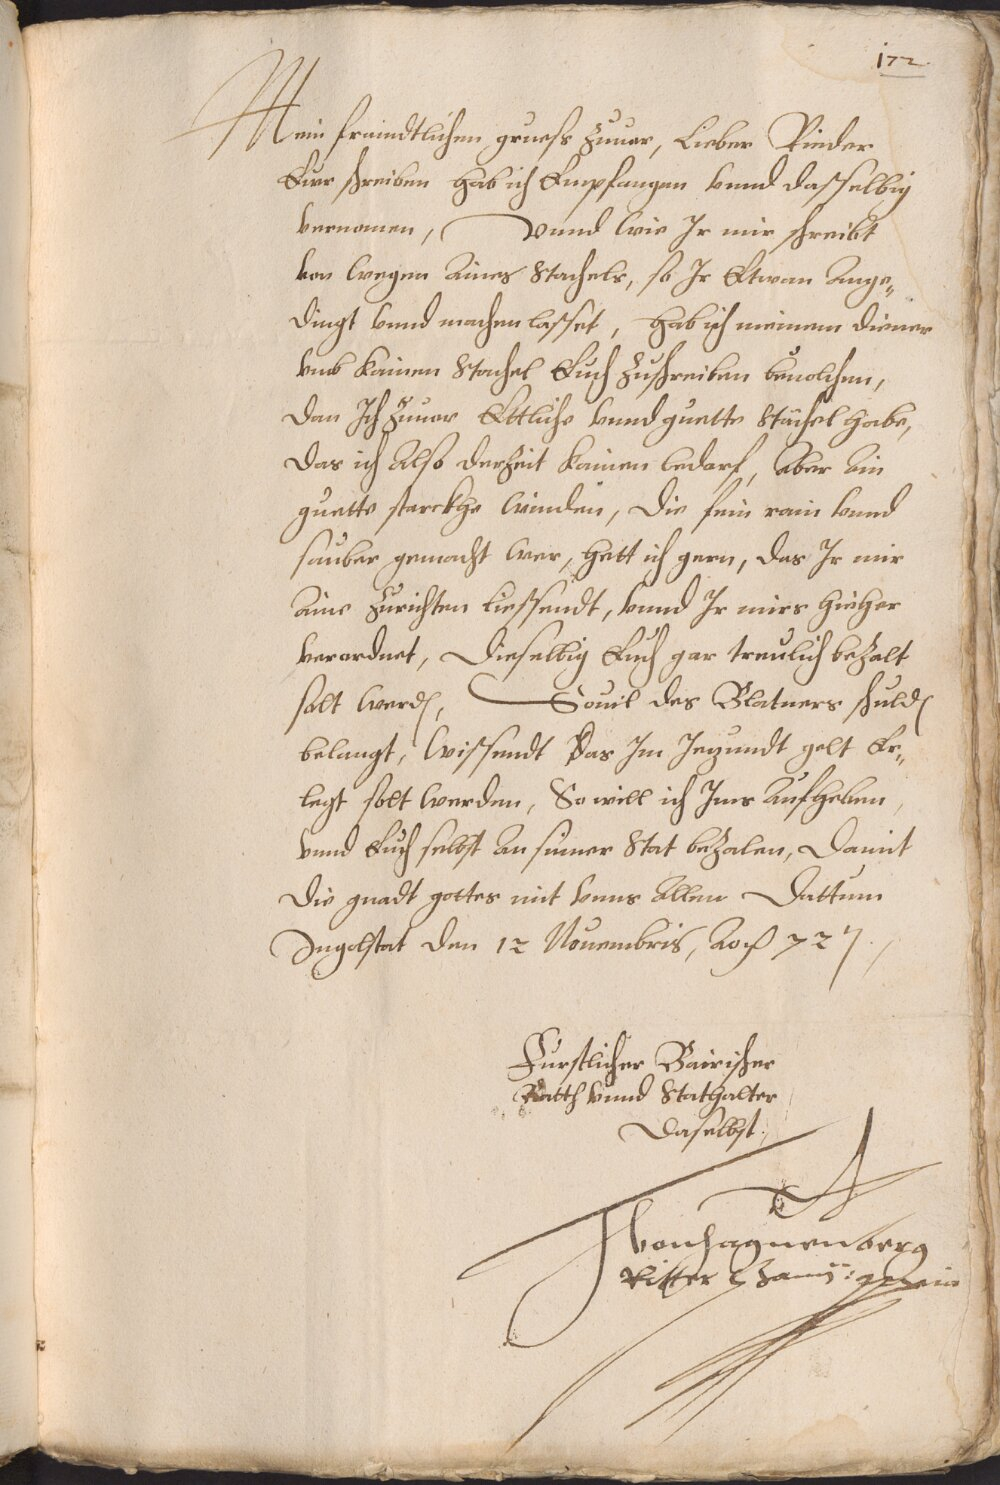 172
Mein freindtlichen grueß zuuor, Lieber Rieder
Eurr schreiben hab ich Empfangen vnnd dasselbig
vernomen, Vnnd wie Ir mir schreibt
von wegen Aines Stachels, so Ir Etwan Ange„
dingt vnnd machen lasset, hab ich meinem diener
vmb kainen Stachel Euch zuschreiben beuolchen,
dan Ich zuuor Ettliche vnnd guette Stächel habe,
das ich Also derzeit kainen bedarf, Aber Ain
guette starckhe winden, die fein rain vnnd
sauber gemacht wer, hett ich gern, das Ir mir
Aine zurichten liessendt, vnnd Ir mirs hieher
verordnet, dieselbig Euch gar treulich bezalt
solt werdn, Souil des Blatners schuldn
belangt, wissendt das Im Jezundt gelt Er„
legt solt werden, So will ich Ims Aufheben,
vnnd Euch selbst An seiner Stat bezalen, damit
die gnadt gottes mit vnns Allen Dattum
Ingolstat den 12 Nouembris, Ao 72
Furstlicher Bairischer
Ratth vnnd Stathalter
daselbst.
von hagnenberg
Ritter